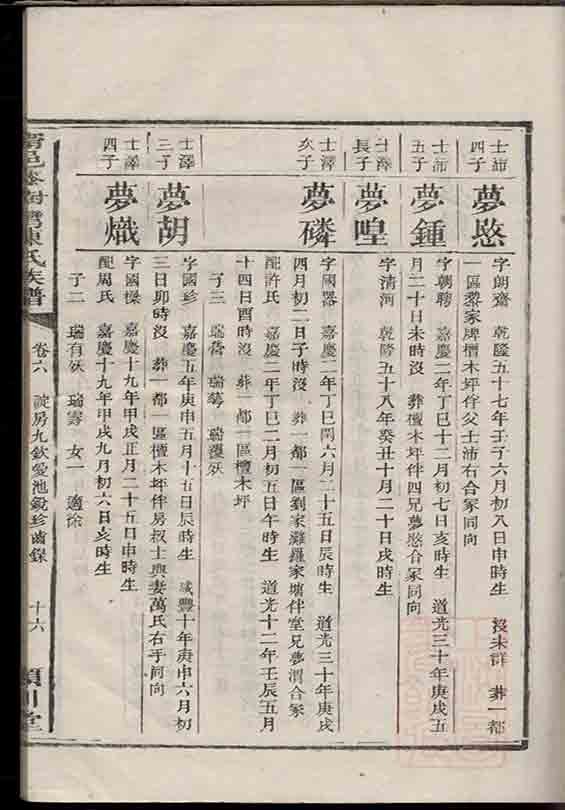 士沛四子
夢愍
字朗齋 乾隆五十七年壬子六月初八日申時生 歿未詳 葬一都
一區黎家牌檀木坪伴父士沛右合冢同向
士沛五子
夢鍾
字朝聘 嘉慶二年丁巳十二月初七日亥時生 道光三十年庚戌五
月二十日未時沒 葬檀木坪伴四兄夢愍合冢同向
士澤長子
夢喤
字清河 乾隆五十八年癸丑十月二十日戌時生
士澤次子
夢磷
字國器 嘉慶二年丁巳閏六月二十五日辰時生 道光三十年庚戌
四月初二日子時沒 葬一都一區劉家灘羅家塘伴堂兄夢渭合冢
配許氏 嘉慶二年丁巳二月初五日午時生 道光十二年壬辰五月
十四日酉時沒 葬一都一區檀木坪
子三 瑞喬 瑞萼 瑞選殀
士澤三子
夢胡
字國珍 嘉慶五年庚申五月十五日辰時生 咸豐十年庚申六月初
三日卯時沒 葬一都一區檀木坪伴房叔士與妻萬氏右手同向
士澤四子
夢熾
字國樑 嘉慶十九年甲戌正月二十五日申時生
配周氏 嘉慶十九年甲戌九月初六日亥時生
子二 瑞有殀 瑞雲 女一 適徐
陳氏族譜
卷六 淀房九欽愛池鏡珍齒錄
十六 潁川堂